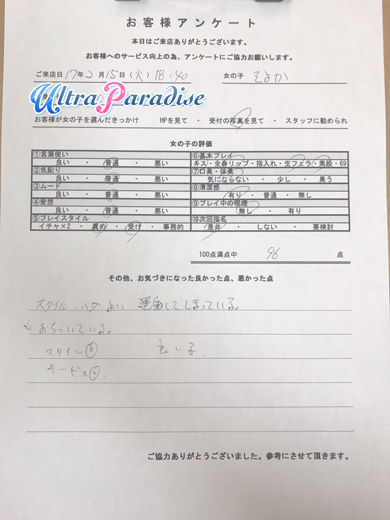 お客様アンケート
本日はご来店ありがとうございます。
お客様へのサービス向上の為、アンケートにご協力お願いします。
ご来店日 17年2月15日(火)18:40 女の子
Ultra Paradise
お客様が女の子を選んだきっかけ HPを見て ・ 受付の写真を見て ・ スタッフに勧められ
女の子の評価
①言葉使い
良い ・ 普通 ・ 悪い
②気配り
良い ・ 普通 ・ 悪い
③ムード
良い ・ 普通 ・ 悪い
④愛想
良い ・ 普通 ・ 悪い
⑤プレイスタイル
イチャ×2 ・ 責め ・ 受け ・ 事務的
⑥基本プレイ
キス・全身リップ・指入れ・生フェラ・素股・69
⑦口臭・体臭
気にならない ・ 少し ・ 臭う
⑧清潔感
有り ・ 普通 ・ 無し
⑨プレイ中の喫煙
無し ・ 有り
⑩次回指名
是非 ・ しない ・ 要検討
100点満点中 96 点
その他、お気づきになった良かった点、悪かった点
スタイル、ハダよい
おちついている。
スタイル 良い子
サービス
ご協力ありがとうございました。参考にさせて頂きます。